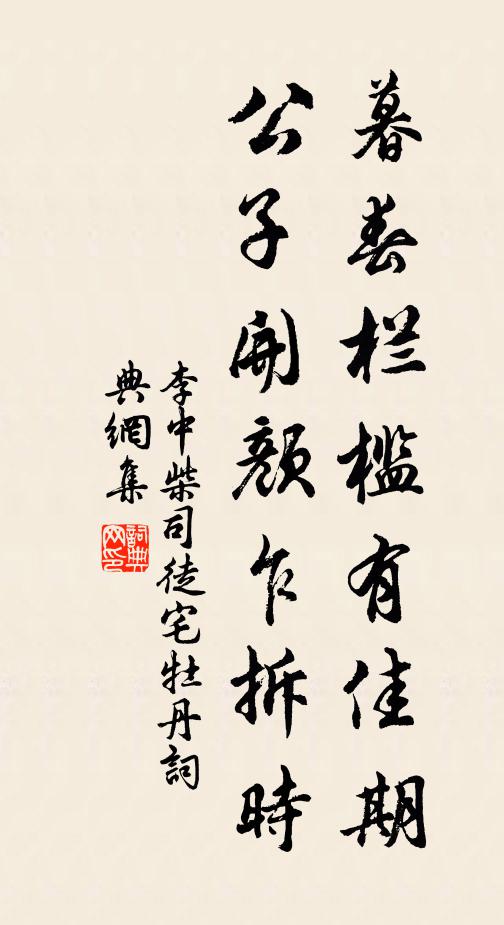 暮春栏槛有佳期
公子開颜乍拆時
李中柴司徒宅牡丹詞
典網集
詞典
网印